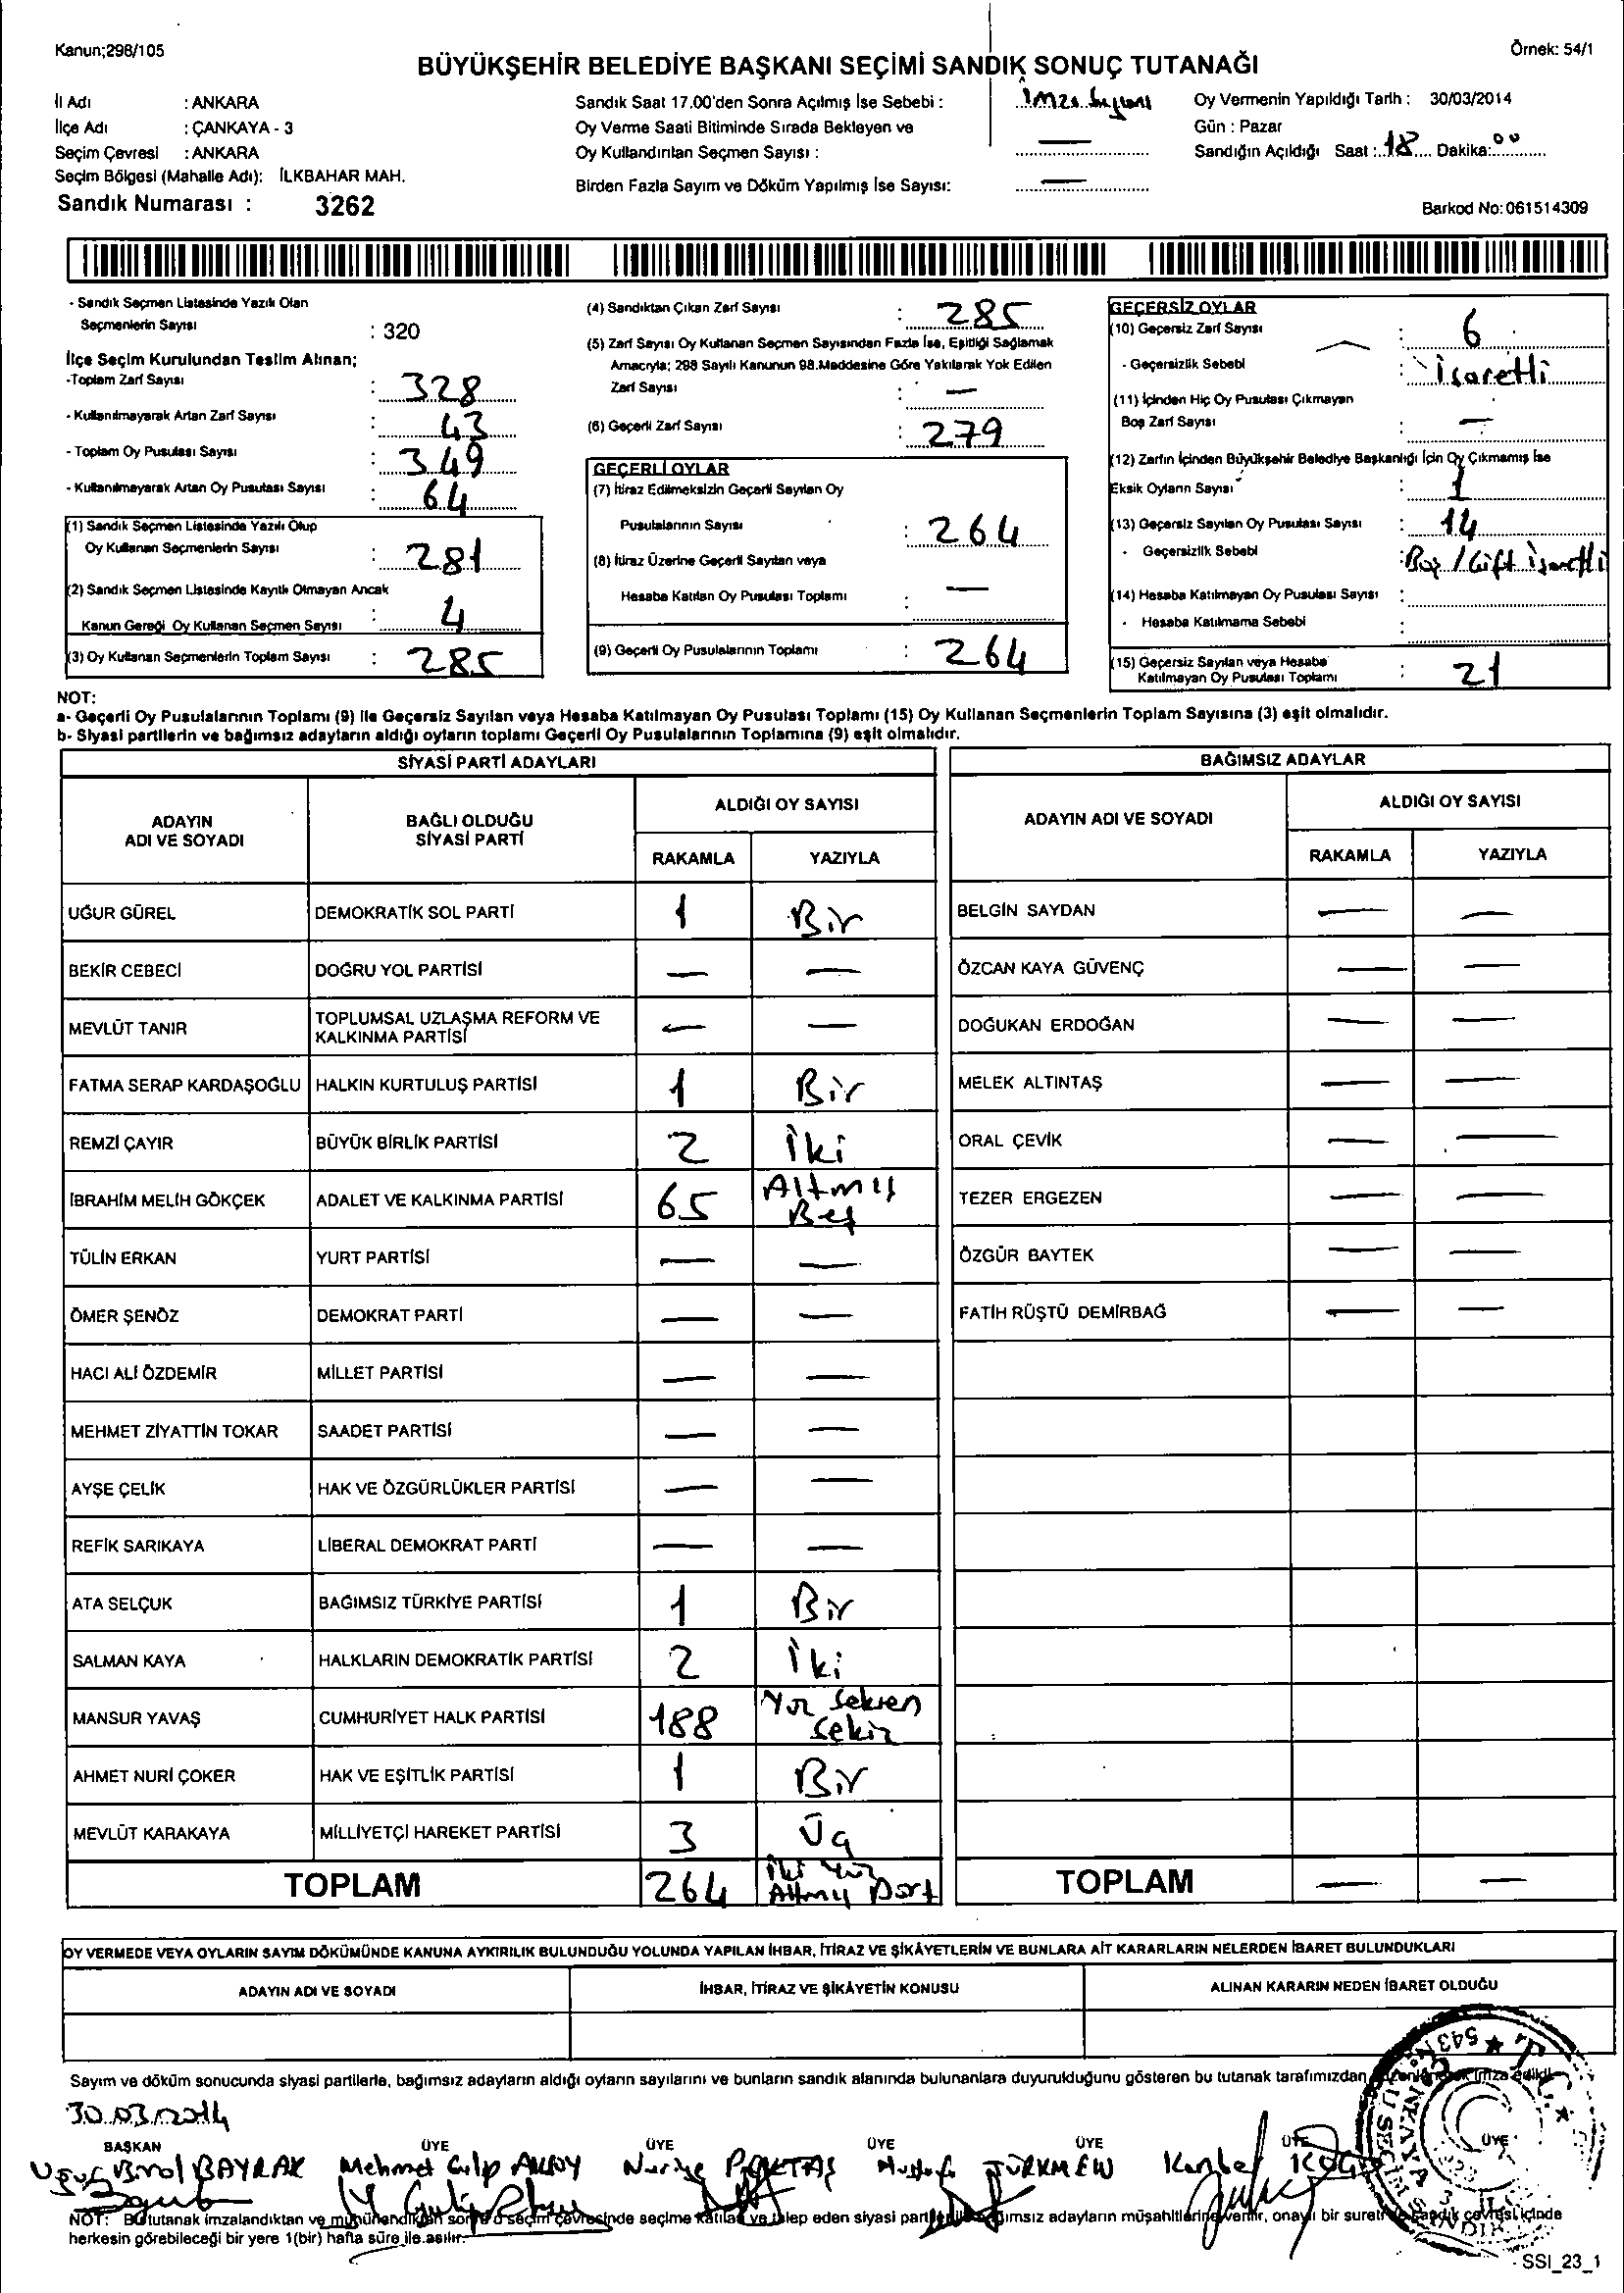 Kanun;298/105
Örnek: 54/1
BÜYÜKŞEHİR BELEDİYE BAŞKANI SEÇİMİ SANDIK SONUÇ TUTANAĞI
İl Adı : ANKARA
İlçe Adı : ÇANKAYA - 3
Seçim Çevresi : ANKARA
Seçim Bölgesi (Mahalle Adı): İLKBAHAR MAH.
Sandık Numarası : 3262
Sandık Saat 17.00'den Sonra Açılmış İse Sebebi : İmza
Oy Verme Saati Bitiminde Sırada Bekleyen ve
Oy Kullandırılan Seçmen Sayısı : —
Birden Fazla Sayım ve Döküm Yapılmış İse Sayısı: —
Oy Vermenin Yapıldığı Tarih : 30/03/2014
Gün : Pazar
Sandığın Açıldığı Saat : 18 Dakika: 00
Barkod No: 061514309
- Sandık Seçmen Listesinde Yazılı Olan
Seçmenlerin Sayısı : 320
İlçe Seçim Kurulundan Teslim Alınan;
-Toplam Zarf Sayısı : 328
- Kullanılmayarak Artan Zarf Sayısı : 43
- Toplam Oy Pusulası Sayısı : 349
- Kullanılmayarak Artan Oy Pusulası Sayısı : 64
(1) Sandık Seçmen Listesinde Yazılı Olup
Oy Kullanan Seçmenlerin Sayısı : 281
(2) Sandık Seçmen Listesinde Kayıtlı Olmayan Ancak
Kanun Gereği Oy Kullanan Seçmen Sayısı : 4
(3) Oy Kullanan Seçmenlerin Toplam Sayısı : 285
(4) Sandıktan Çıkan Zarf Sayısı : 285
(5) Zarf Sayısı Oy Kullanan Seçmen Sayısından Fazla İse, Eşitliği Sağlamak
Amacıyla; 298 Sayılı Kanunun 98.Maddesine Göre Yakılarak Yok Edilen
Zarf Sayısı : —
(6) Geçerli Zarf Sayısı : 279
GEÇERLİ OYLAR
(7) İtiraz Edilmeksizin Geçerli Sayılan Oy
Pusulalarının Sayısı : 264
(8) İtiraz Üzerine Geçerli Sayılan veya
Hesaba Katılan Oy Pusulası Toplamı : —
(9) Geçerli Oy Pusulalarının Toplamı : 264
GEÇERSİZ OYLAR
(10) Geçersiz Zarf Sayısı : 6
- Geçersizlik Sebebi : İşaretli
(11) İçinden Hiç Oy Pusulası Çıkmayan
Boş Zarf Sayısı : —
(12) Zarfın İçinden Büyükşehir Belediye Başkanlığı İçin Oy Çıkmamış İse
Eksik Oyların Sayısı : 1
(13) Geçersiz Sayılan Oy Pusulası Sayısı : 14
- Geçersizlik Sebebi : Boş / Çift işaretli
(14) Hesaba Katılmayan Oy Pusulası Sayısı :
- Hesaba Katılmama Sebebi :
(15) Geçersiz Sayılan veya Hesaba
Katılmayan Oy Pusulası Toplamı : 21
NOT:
a- Geçerli Oy Pusulalarının Toplamı (9) ile Geçersiz Sayılan veya Hesaba Katılmayan Oy Pusulası Toplamı (15) Oy Kullanan Seçmenlerin Toplam Sayısına (3) eşit olmalıdır.
b- Siyasi partilerin ve bağımsız adayların aldığı oyların toplamı Geçerli Oy Pusulalarının Toplamına (9) eşit olmalıdır.
SİYASİ PARTİ ADAYLARI
ADAYIN ADI VE SOYADI BAĞLI OLDUĞU SİYASİ PARTİ ALDIĞI OY SAYISI
RAKAMLA YAZIYLA
UĞUR GÜREL DEMOKRATİK SOL PARTİ 1 Bir
BEKİR CEBECİ DOĞRU YOL PARTİSİ — —
MEVLÜT TANIR TOPLUMSAL UZLAŞMA REFORM VE KALKINMA PARTİSİ — —
FATMA SERAP KARDAŞOĞLU HALKIN KURTULUŞ PARTİSİ 1 Bir
REMZİ ÇAYIR BÜYÜK BİRLİK PARTİSİ 2 İki
İBRAHİM MELİH GÖKÇEK ADALET VE KALKINMA PARTİSİ 65 Altmış Beş
TÜLİN ERKAN YURT PARTİSİ — —
ÖMER ŞENÖZ DEMOKRAT PARTİ — —
HACI ALİ ÖZDEMİR MİLLET PARTİSİ — —
MEHMET ZİYATTİN TOKAR SAADET PARTİSİ — —
AYŞE ÇELİK HAK VE ÖZGÜRLÜKLER PARTİSİ — —
REFİK SARIKAYA LİBERAL DEMOKRAT PARTİ — —
ATA SELÇUK BAĞIMSIZ TÜRKİYE PARTİSİ 1 Bir
SALMAN KAYA HALKLARIN DEMOKRATİK PARTİSİ 2 İki
MANSUR YAVAŞ CUMHURİYET HALK PARTİSİ 188 Yüz Seksen Sekiz
AHMET NURİ ÇOKER HAK VE EŞİTLİK PARTİSİ 1 Bir
MEVLÜT KARAKAYA MİLLİYETÇİ HAREKET PARTİSİ 3 Üç
TOPLAM 264 İki Yüz Altmış Dört
BAĞIMSIZ ADAYLAR
ADAYIN ADI VE SOYADI ALDIĞI OY SAYISI
RAKAMLA YAZIYLA
BELGİN SAYDAN — —
ÖZCAN KAYA GÜVENÇ — —
DOĞUKAN ERDOĞAN — —
MELEK ALTINTAŞ — —
ORAL ÇEVİK — —
TEZER ERGEZEN — —
ÖZGÜR BAYTEK — —
FATİH RÜŞTÜ DEMİRBAĞ — —
TOPLAM — —
OY VERMEDE VEYA OYLARIN SAYIM DÖKÜMÜNDE KANUNA AYKIRILIK BULUNDUĞU YOLUNDA YAPILAN İHBAR, İTİRAZ VE ŞİKÂYETLERİN VE BUNLARA AİT KARARLARIN NELERDEN İBARET BULUNDUKLARI
ADAYIN ADI VE SOYADI İHBAR, İTİRAZ VE ŞİKÂYETİN KONUSU ALINAN KARARIN NEDEN İBARET OLDUĞU
Sayım ve döküm sonucunda siyasi partilerle, bağımsız adayların aldığı oyların sayılarını ve bunların sandık alanında bulunanlara duyurulduğunu gösteren bu tutanak tarafımızdan düzenlenerek imza edildi.
30.03.2014
BAŞKAN ÜYE ÜYE ÜYE ÜYE ÜYE ÜYE
Uğur Birol BAYRAK Mehmet Galip Nuriye Mustafa TÜRKMEN
NOT: Bu tutanak imzalandıktan ve mühürlendikten sonra o seçim çevresinde seçime katılan ve talep eden siyasi partilerle bağımsız adayların müşahitlerine verilir, onaylı bir sureti sandık çevresi içinde
herkesin görebileceği bir yere 1(bir) hafta süre ile asılır.
SSI_23_1